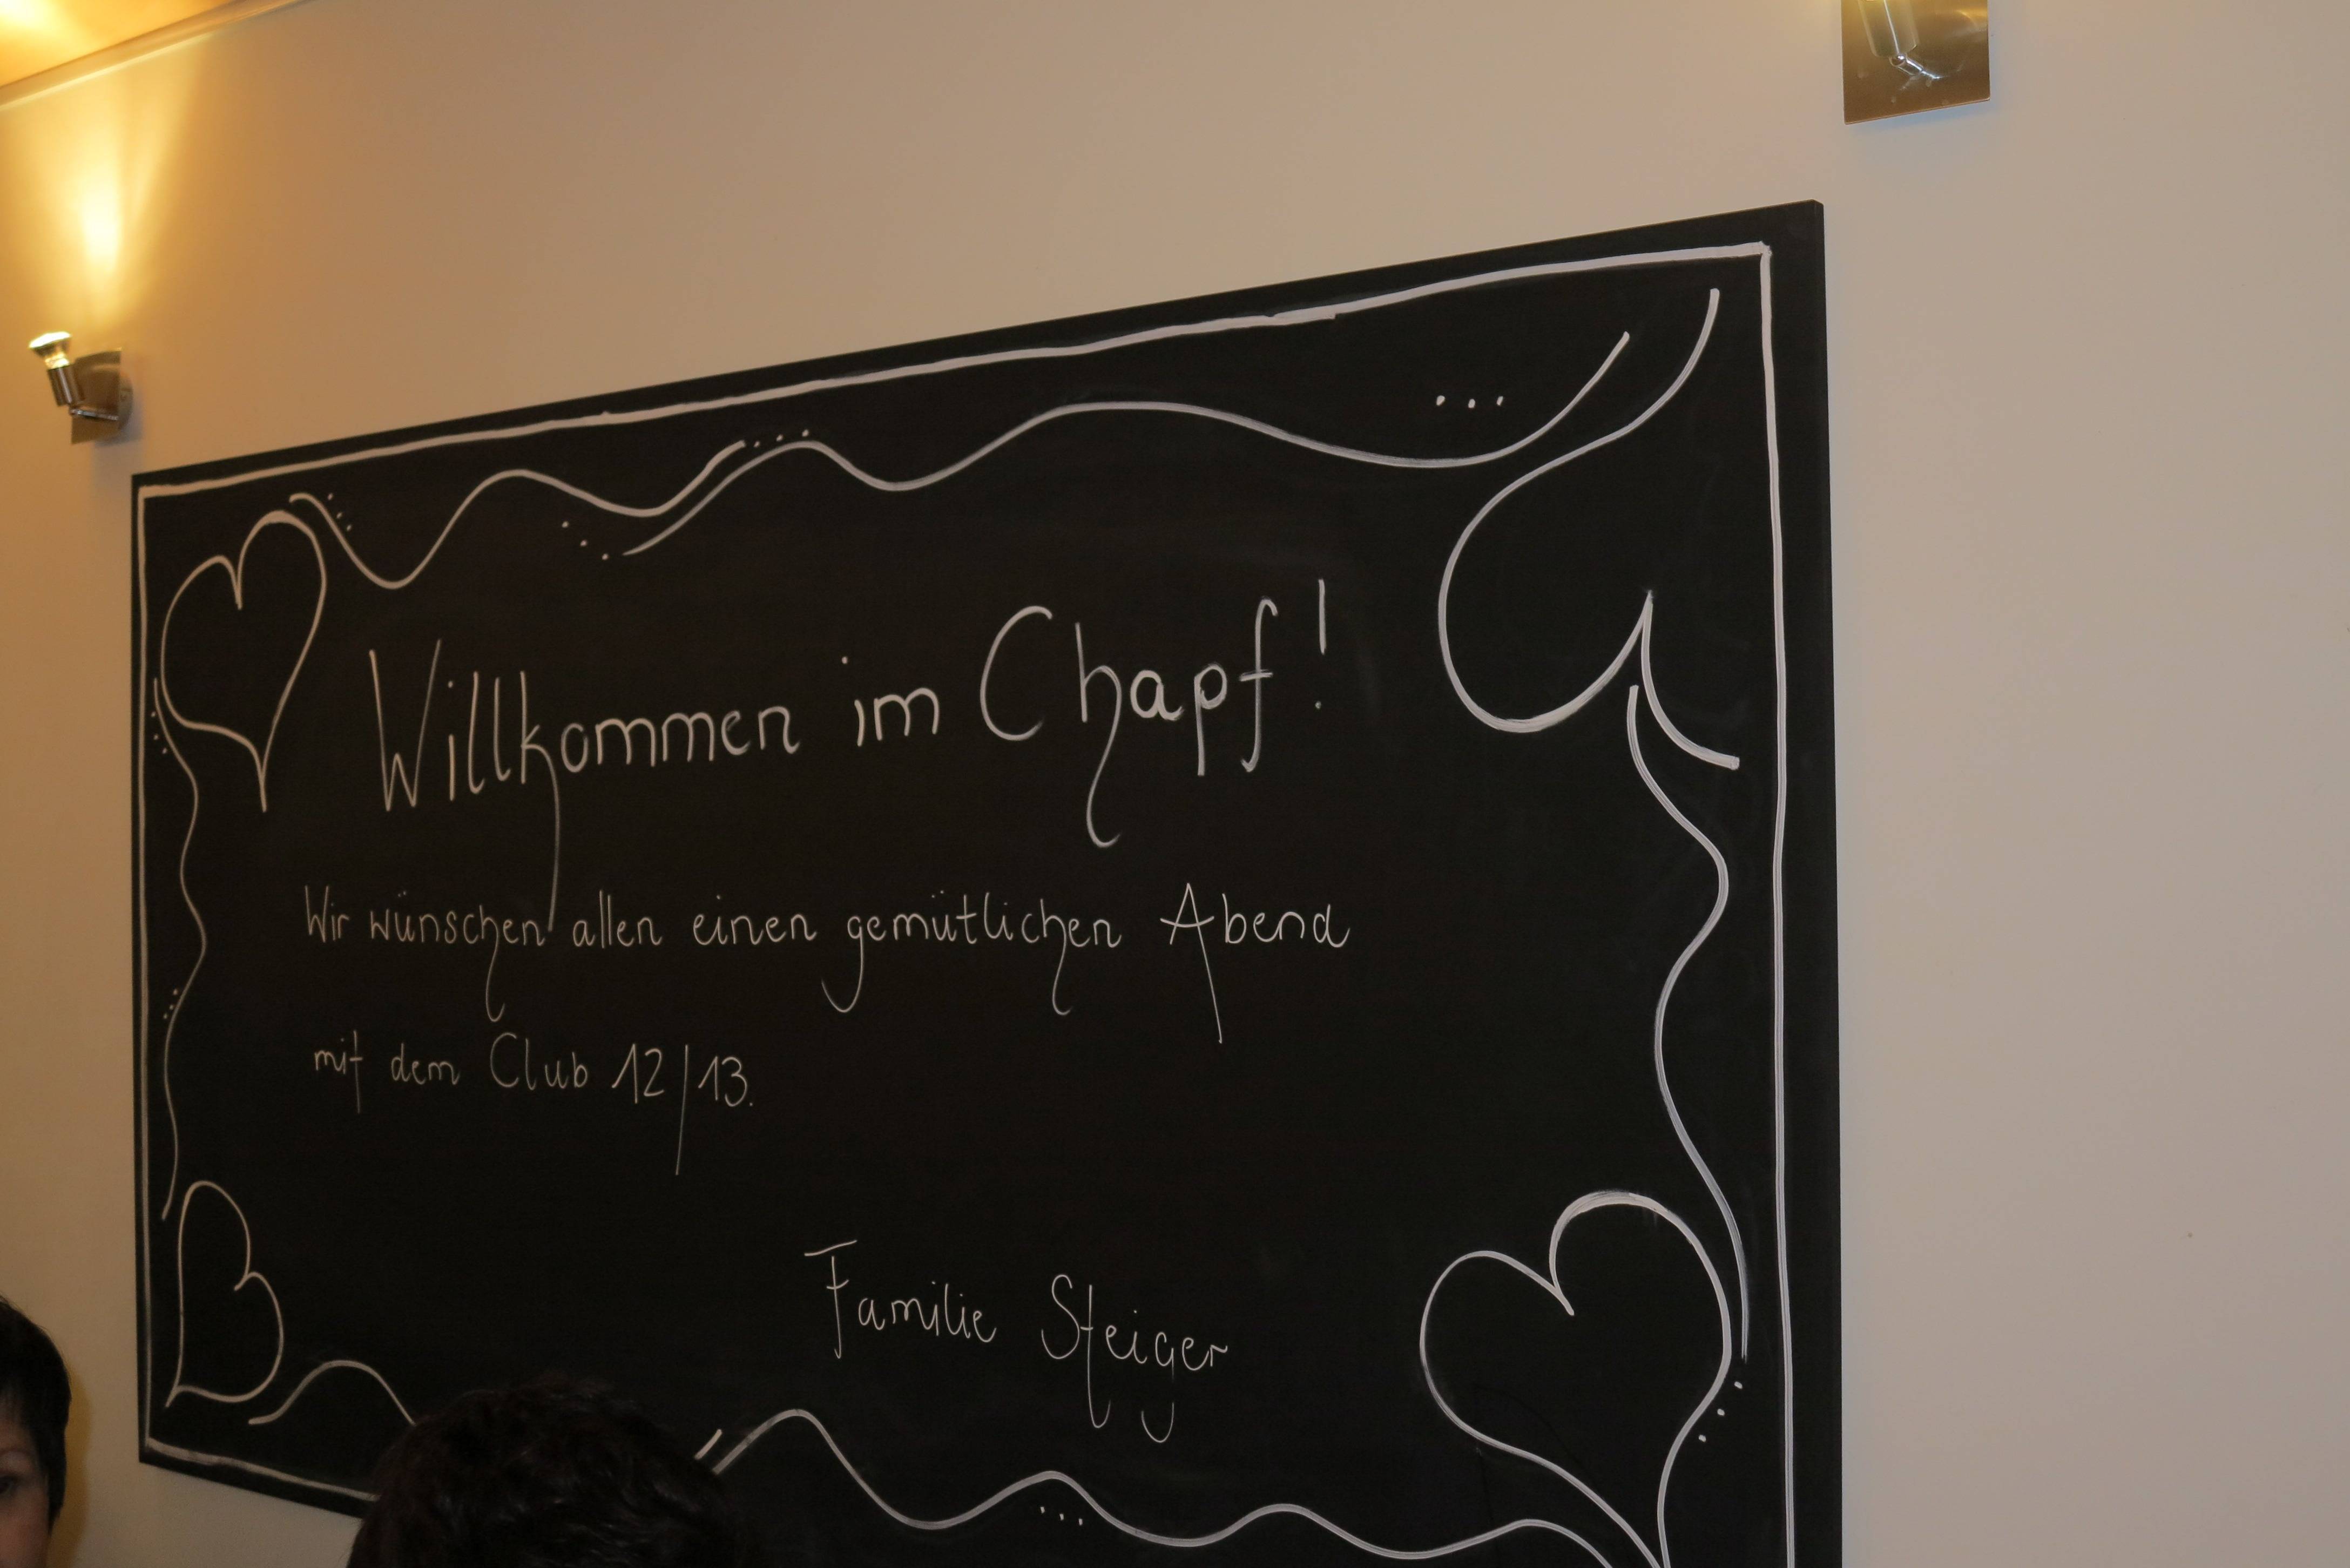 Willkommen im Chapf!
Wir wünschen allen einen gemütlichen Abend
mit dem Club 12/13.
Familie Steiger